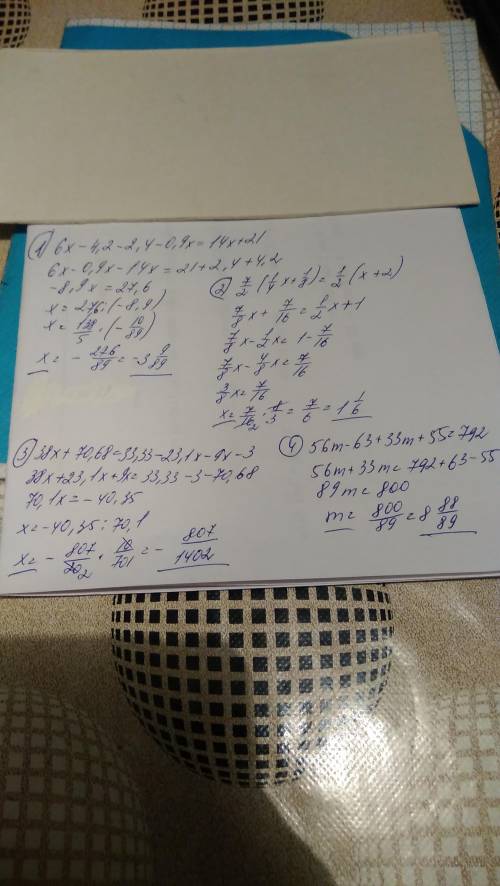 1) 6x-4,2-2,4-0,9x=14x+21
6x-0,9x-14x=21+2,4+4,2
-8,9x=27,6
x=276:(-8,9)
x=138/5·(-10/89)
x=-276/89=-3 9/89
2) 7/2(1/4x+1/8)=1/2(x+2)
7/8x+7/16=1/2x+1
7/8x-1/2x=1-7/16
7/8x-4/8x=7/16
3/8x=7/16
x=7/16 2·8/3=7/6=1 1/6
3) 38x+70,68=33,33-23,1x-9x-3
38x+23,1x+9x=33,33-3-70,68
70,1x=-40,35
x=-40,35:70,1
x=-807/20 2·10/701=-807/1402
4) 56m-63+33m+55=792
56m+33m=792+63-55
89m=800
m=800/89=8 88/89